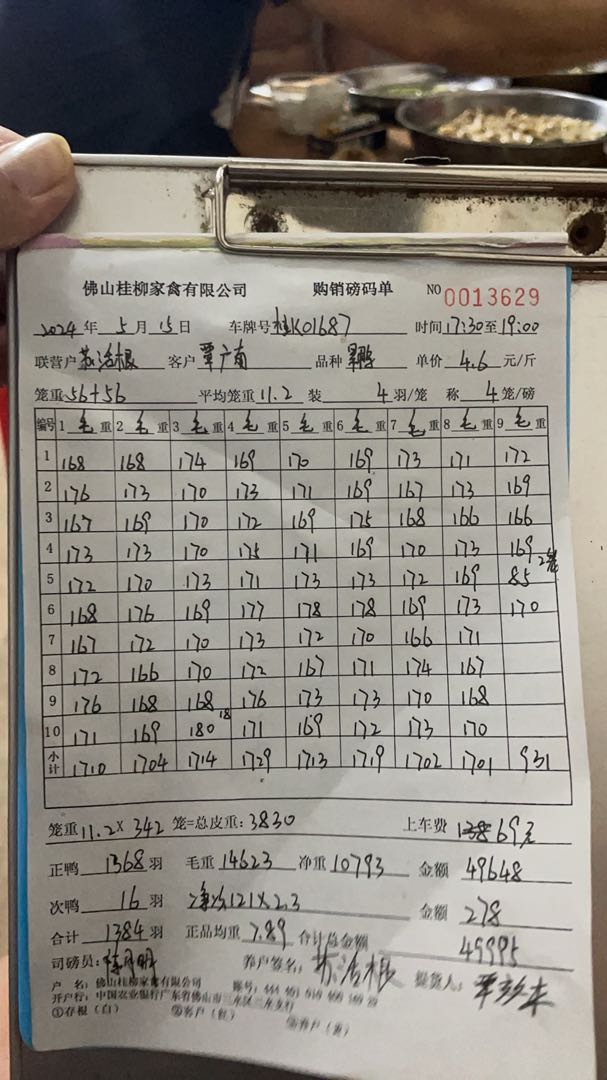 佛山桂柳家禽有限公司 购销磅码单 NO 0013629
2024年5月15日 车牌号 桂K01687 时间17:30至19:00
联营户 苏洁根 客户 覃广南 品种 单价 4.6 元/斤
笼重56+56 平均笼重11.2 装 4 羽/笼 称 4 笼/磅
编号 1 毛 重 2 毛 重 3 毛 重 4 毛 重 5 毛 重 6 毛 重 7 毛 重 8 毛 重 9 毛 重
1 168 168 174 169 170 169 173 171 172
2 176 173 170 173 171 169 167 173 169
3 167 169 170 172 169 175 168 166 166
4 173 173 170 175 171 169 170 173 169
5 172 170 173 171 173 173 172 169 85 2笼
6 168 176 169 177 178 178 169 173 170
7 167 172 170 173 172 170 166 171
8 172 166 170 172 167 171 174 167
9 176 168 168 176 173 173 170 168
10 171 169 180 18 171 169 172 173 170
小计 1710 1704 1714 1729 1713 1719 1702 1701 931
笼重 11.2× 342 笼=总皮重: 3830 上车费 69元
正鸭 1368 羽 毛重 14623 净重 10793 金额 49648
次鸭 16 羽 121×2.3 金额 278
合计 1384 羽 正品均重 7.89 合计总金额 49995
司磅员: 养户签名: 苏洁根 提货人:
户 名: 佛山桂柳家禽有限公司 账号:
开户行: 中国农业银行广东省佛山市三水区三水支行
①存根(白) ②客户(红) ③养户(黄)